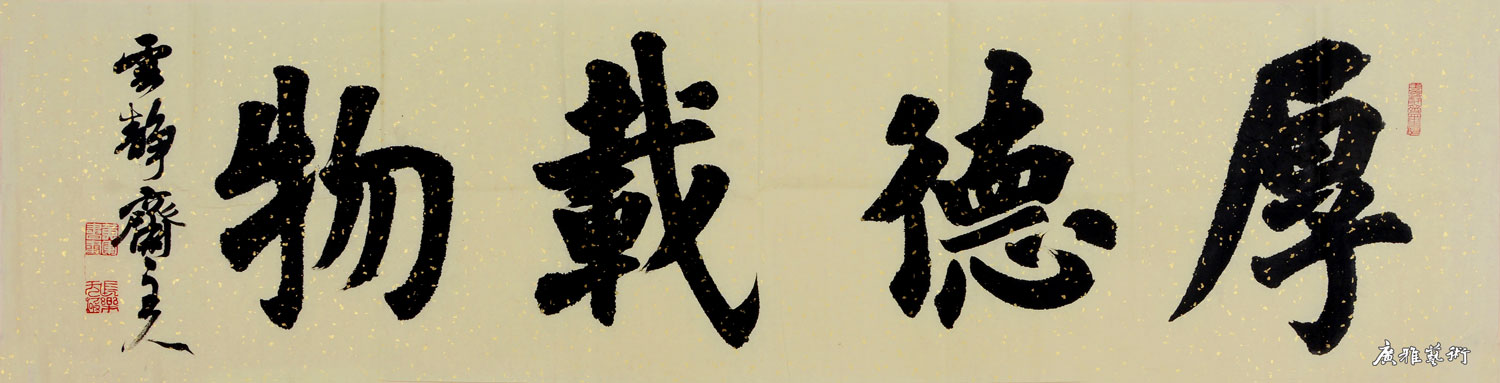 厚德載物
雲靜齋主人
長樂
廣雅藝術